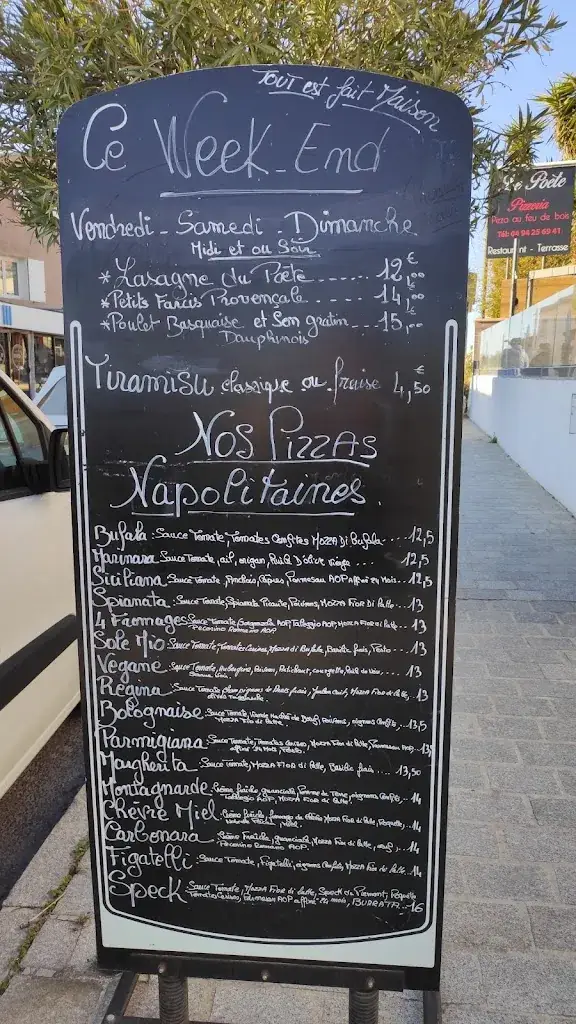 Tout est fait Maison
Ce Week-End
Vendredi - Samedi - Dimanche
Midi et ou Soir
* Lasagne du Poète ...... 12,00 €
* Petits Farcis Provençale ...... 14,00 €
* Poulet Basquaise et Son gratin ... 15,00 €
Dauphinois
Tiramisu classique ou fraise 4,50 €
Nos Pizzas
Napolitaines
Bufala : Sauce Tomate, Tomates Confites Mozza Di Bufala .... 12,5
Marinara Sauce Tomate, ail, origan, Huile D'olive vierge ... 12,5
Siciliana Sauce Tomate, Anchois, Câpres, Parmesan AOP affiné 24 Mois ... 12,5
Spianata : Sauce Tomate, Spianata Picante, Poivrons, Mozza Fior Di Latte .. 13
4 Fromages Sauce Tomate, Gorgonzola AOP, Taleggio AOP, Mozza Fior di Latte ... 13
Pecorino Romano AOP
Sole Mio Sauce Tomate, Tomates Cerises, Mozza di Bufala, Basilic frais, Pesto .. 13
Vegane Sauce Tomate, Aubergine, Poivrons, Artichaut, courgette, .. 13
Regina Sauce Tomate champignons de Paris frais, Jambon cuit, Mozza Fior di latte, .. 13
Bolognaise Sauce Tomate, Viande Hachée de Boeuf, Poivrons, oignons Confits, .. 13,5
Mozza Fior di Latte
Parmigiana Sauce Tomate, Tomates cerises, Mozza Fior di Latte, Parmesan AOP .. 13
affiné 24 Mois, Pesto
Margherita Sauce Tomate, Mozza Fior di Latte, Basilic frais .... 13,50
Montagnarde Crème fraîche, guanciale, Pomme de Terre, oignons Confits, .. 14
Taleggio AOP, Mozza Fior di Latte
Chèvre Miel Crème fraîche, fromage de chèvre Mozza Fior di Latte, Roquette, .. 14
Miel
Carbonara Crème Fraîche, guanciale, Mozza Fior di Latte, œuf, .. 14
Pecorino Romano AOP
Figatelli Sauce Tomate, Figatelli, oignons Confits, Mozza Fior di Latte .. 14
Speck Sauce Tomate, Mozza Fior di Latte, Speck du Piemont, Roquette
Tomates Cerises, Parmesan AOP affiné 24 mois, BURRATA .. 16
Le Poète
Pizzeria
Pizza au feu de bois
Tél: 04 94 25 69 41
Restaurant - Terrasse